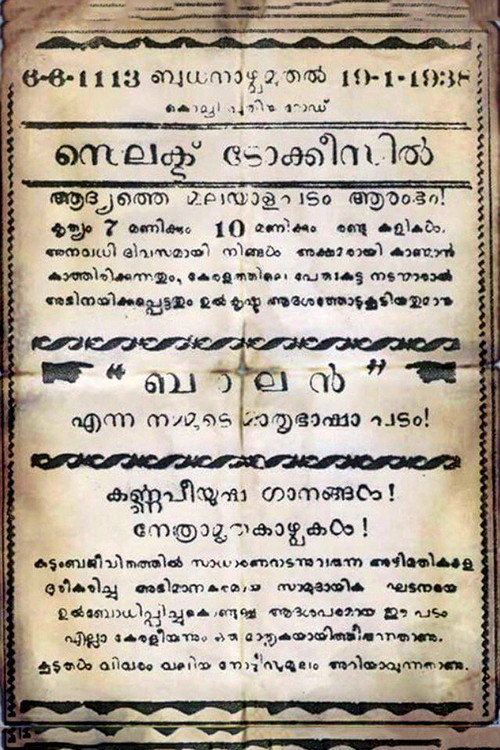 6-6-1113 ബുധനാഴ്ചമുതൽ 19-1-1938
കൊച്ചി റോഡ്
സെലക്ട് ടോക്കീസിൽ
ആദ്യത്തെ മലയാളപടം ആരംഭം!
കൃത്യം 7 മണിക്കും 10 മണിക്കും രണ്ടു കളികൾ.
അനവധി ദിവസമായി നിങ്ങൾ കാണ്മാൻ
കാത്തിരിക്കുന്നതും, കേരളത്തിലെ പേരുകേട്ട നടന്മാരാൽ
അഭിനയിക്കപ്പെട്ടതും ഉൽകൃഷ്ട
“ബാലൻ”
എന്ന നമ്മുടെ മാതൃഭാഷാ പടം!
കർണ്ണപീയൂഷ ഗാനങ്ങൾ!
നേത്രാമൃതകാഴ്ചകൾ!
കുടുംബജീവിതത്തിൽ സാധാരണനടന്നുവരുന്ന അഴിമതികളെ
ദൂരീകരിച്ച് അഭിമാനകരമായ സാമുദായിക ഘടനയെ
ഉൽബോധിപ്പിച്ചുകൊണ്ടുള്ള ഈ പടം
എല്ലാ കേരളീയനും ഒരു മാതൃകയായിത്തീരുന്നതാണു.
കൂടുതൽ വിവരം വലിയ നോട്ടീസുമൂലം അറിയാവുന്നതാണു.